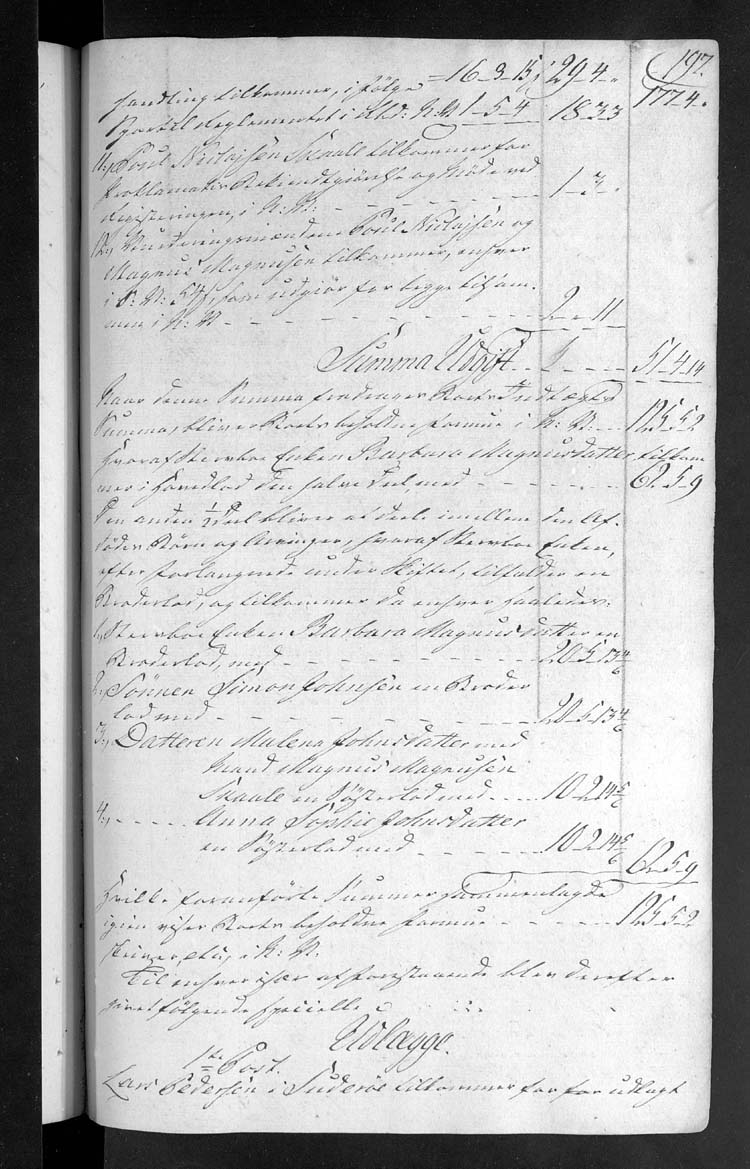 197.
handling tilkommer, ifølge =16-3-15; 29-4.
Sportel Reglementet i Slkd: N:V: 1-5-4 18 33 177-4.
11., Poul Niclajsen Skaale tilkommer for
Proklamatis Bekiendtgiørelse og Møde ved
Registeringen, i N: V: - - - 1-3.
12., Vurderingsmændene Poul Niclajsen og
Magnus Magnusen tilkommer, enhver
i S: V: 54 som udgiør for begge tilsam-
men i N: V - - - - 2 " 11
Summa Udgift - - - 51-4-14
Naar denne Summa fradrages Boets Indtægts
Summa, bliver Boets beholdne formue i N: V: - 125-5-2
hvoraf Stervboe Enken Barbara Magnusdatter tilkom-
mer i Hovedlod den halve Deel, med - - - 62-5-9
Den anden 1/2 Deel bliver at deele imellem den Af-
dødes Børn og Arvinger, hvoraf Stervboe Enken,
efter forlangende under Skiftet, tilfalder en
Broderlod, og tilkommer da enhver saaledes:
1., Stervboe Enken Barbara Magnusdatter en
Broderlod, med - - - 20-5-13 4/6
2., Sønnen Simon Johnsen en Broder
lod med - - - - 20-5-13 4/6
3., Datteren Malena Johnsdatter med
Mand Magnus Magnusen
Skaale en Søsterlod med - - - 10-2-14 5/6
4., - - - - Anna Sophie Johnsdatter
en Søsterlod med - - - 10-2-14 5/6
62-5-9
Hvilke foranførte Summer sammenlagde
igien viser Boets beholdne formue - - - 125-5-2
Skriver, etc, i N: V.
Til enhver især af forestaaende blev derefter
giort følgende specielle
Udlægge.
1ste Post.
Lars Pedersen i Suderøe tilkommer for forudlagt